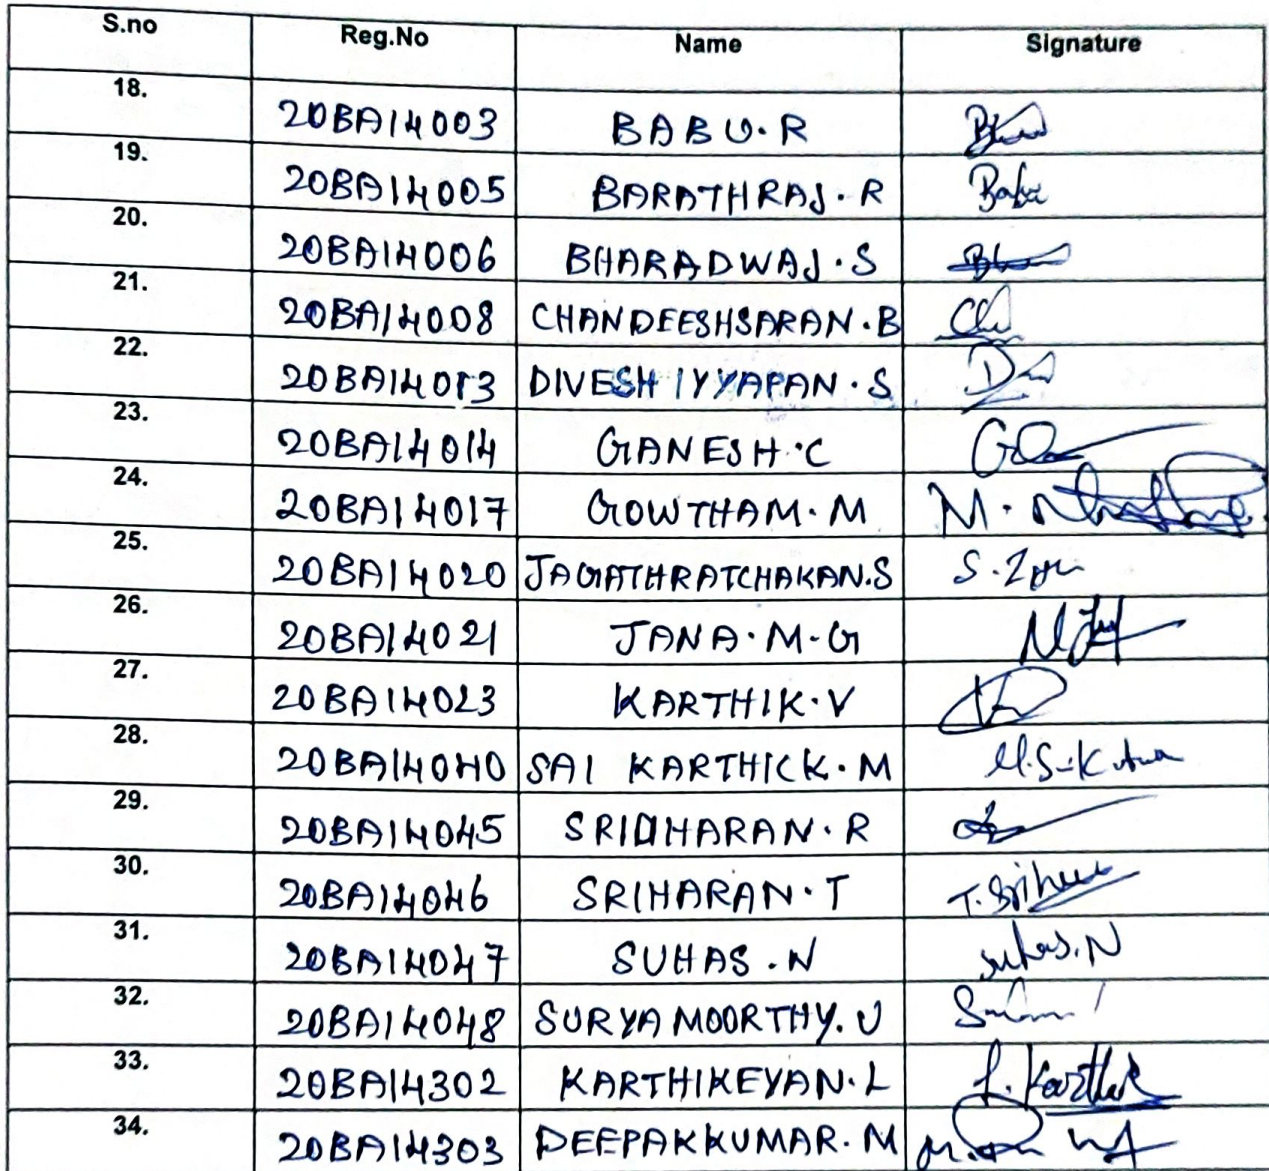 S.no Reg.No Name Signature
18. 20BA14003 BABU.R
19. 20BA14005 BARATHRAJ.R Babu
20. 20BA14006 BHARADWAJ.S
21. 20BA14008 CHANDEESHSARAN.B
22. 20BA14013 DIVESH IYYAPAN.S
23. 20BA14014 GANESH.C
24. 20BA14017 GOWTHAM.M M.
25. 20BA14020 JAGATHRATCHAKAN.S S.
26. 20BA14021 JANA.M.G
27. 20BA14023 KARTHIK.V
28. 20BA14040 SAI KARTHICK.M
29. 20BA14045 SRIDHARAN.R
30. 20BA14046 SRIHARAN.T T.
31. 20BA14047 SUHAS.N suhas.N
32. 20BA14048 SURYAMOORTHY.U
33. 20BA14302 KARTHIKEYAN.L L.Karthik
34. 20BA14303 DEEPAKKUMAR.M